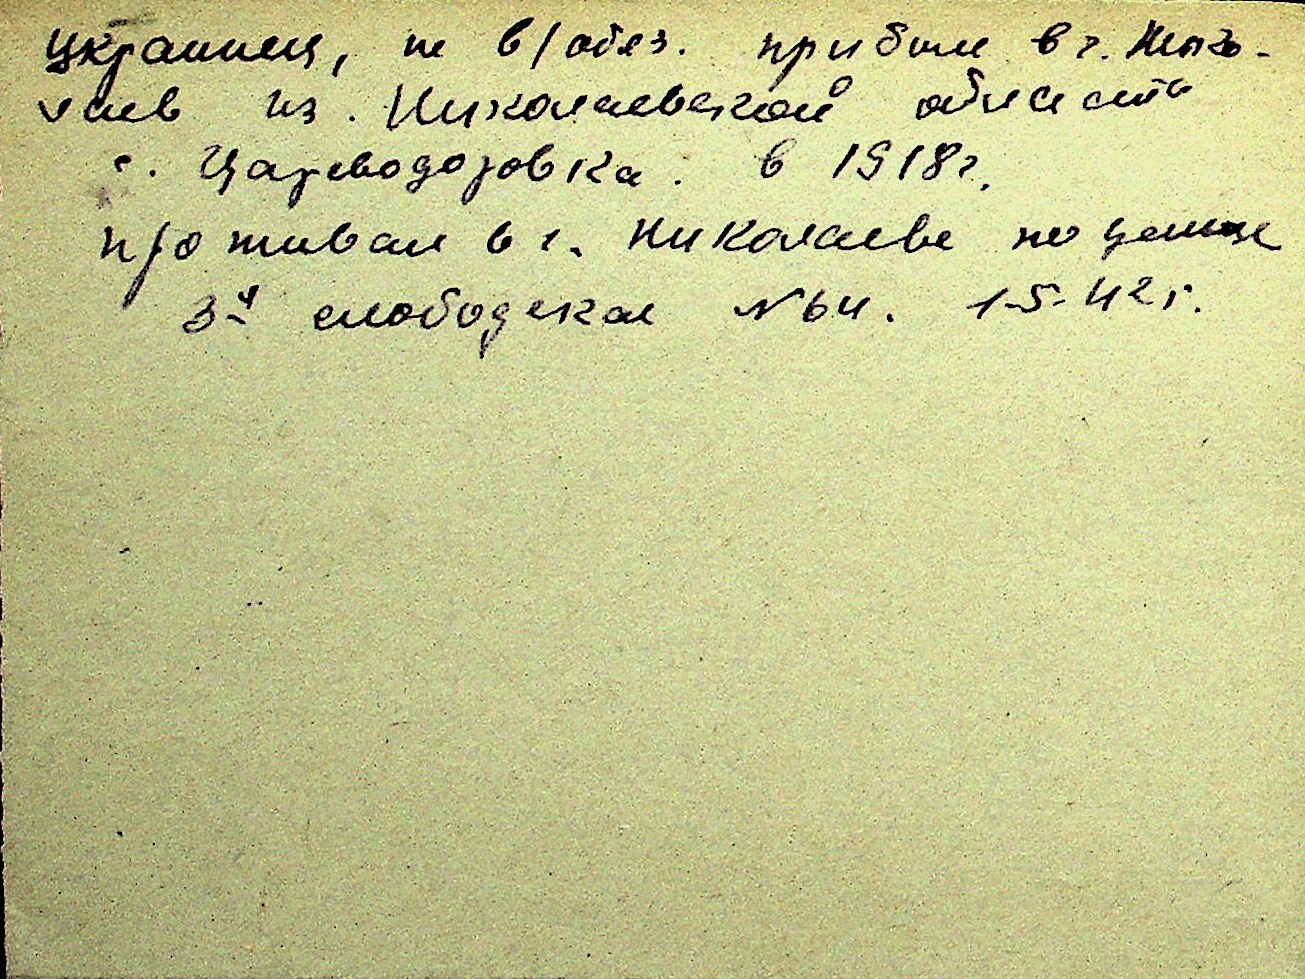 украинец, не в/обяз. прибыл в г. Нико-
лаев из. Николаевской области
с. Цареводаровка. в 1918 г.
проживал в г. Николаеве по улице
3я слободская №64. 1-5-42 г.